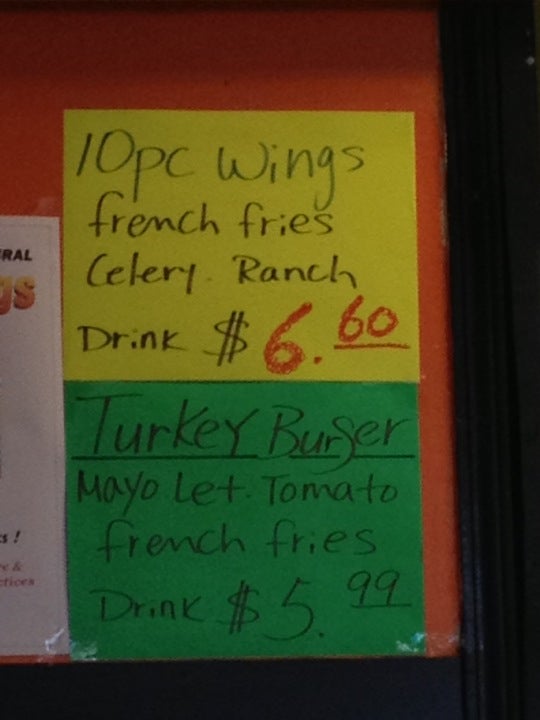 10pc Wings
french fries
Celery. Ranch
Drink $6.60
Turkey Burger
Mayo Let. Tomato
french fries
Drink $5.99